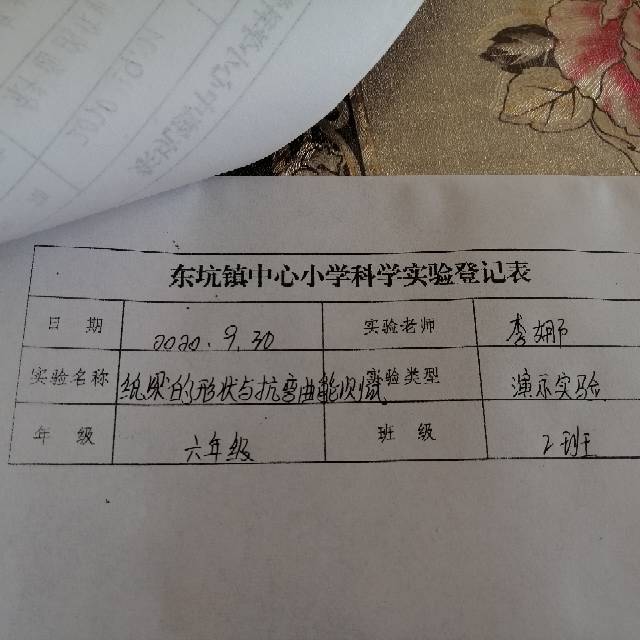 东坑镇中心小学科学实验登记表
日 期 2020.9.30 实验老师 李娜
实验名称 纸梁的形状与抗弯曲能 实验类型 演示实验
年 级 六年级 班 级 2班